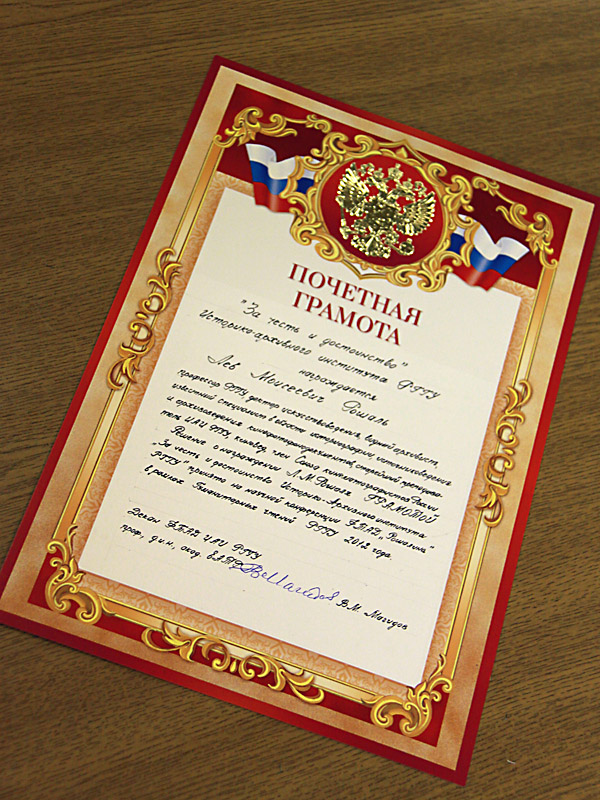 ПОЧЕТНАЯ
ГРАМОТА
"За честь и достоинство"
Историко-архивного института РГГУ
награждается
Лев Моисеевич Рошаль
профессор РГГУ, доктор искусствоведения, видный архивист,
известный специалист в области историографии, источниковедения
и архивоведения кинофотофонодокументов, старейший преподава-
тель ИАИ РГГУ, киновед, член Союза кинематографистов России
Решение о награждении Л.М. Рошаля ГРАМОТОЙ
"За честь и достоинство Историко-Архивного института
РГГУ" принято на научной конференции ФТАД "Рошалины"
в рамках Гуманитарных чтений РГГУ 2012 года.
Декан ФТАД ИАИ РГГУ
проф., д.и.н., акад. ЕАТД В.М. Магидов